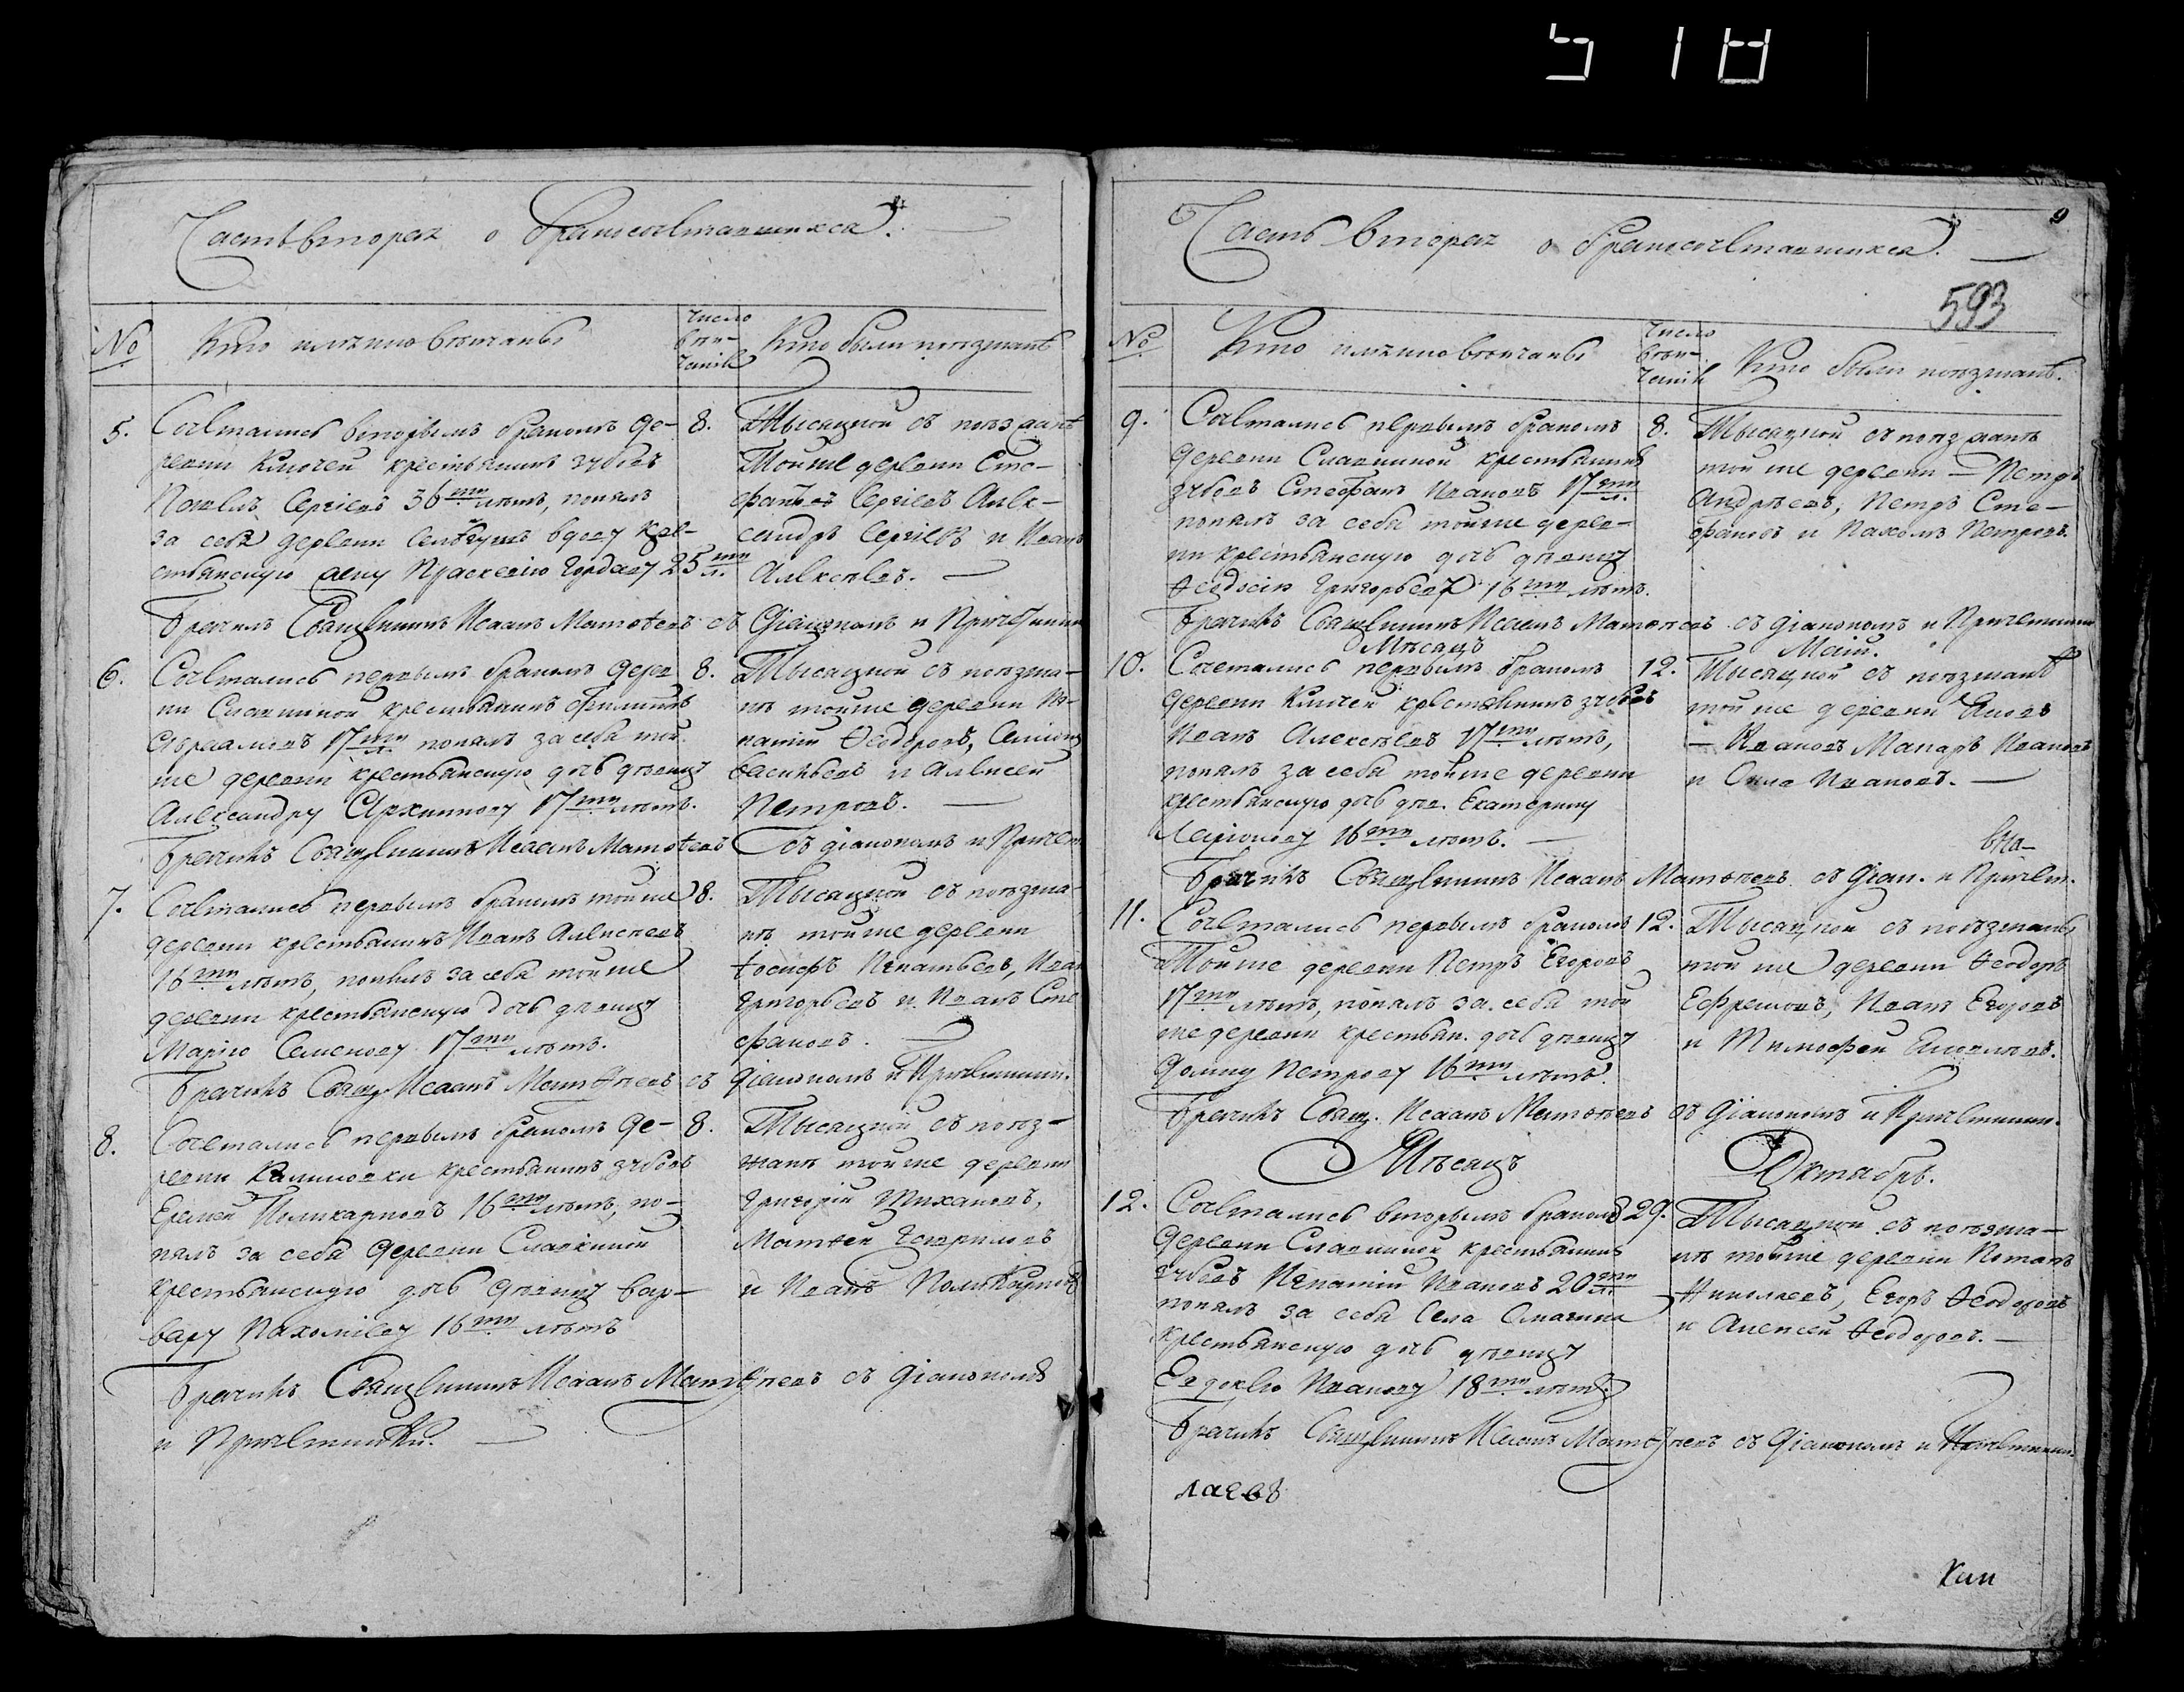 518
Часть вторая о бракосочетавшихся.
№
Кто имянно венчаны
Число
вен-
чанiй
Кто были поѣзжанѣ
5.
Сочетались вторымъ бракомъ де-
ревни Ключей крестьянинъ вдовъ
Павелъ Сергiевъ 36ти лѣтъ, понялъ
за себя деревни вдову кре-
стьянскую жену Прасковiю Гордѣеву 25ти л.
8.
Тысяцкой съ поѣзжанѣ
Тойже деревни Сте-
фанъ Сергiевъ Алек-
сандръ Сергiевъ и Иванъ
Алексѣевъ.
Брачилъ Священникъ Исаакъ Матѳеевъ съ Дiакономъ и Причетники
6.
Сочетались первымъ бракомъ дерев-
ни Славкиной крестьянинъ Филиппъ
Авраамовъ 17ти л. понялъ за себя той
же деревни крестьянскую дочь дѣвицу
Александру Архипову 17ти лѣтъ.
8.
Тысяцкой съ поѣзжа-
нѣ тойже деревни Иг-
натiй Ѳеодоровъ, Семiонъ
Васильевъ и Алексей
Петровъ.
Брачилъ Священникъ Исаакъ Матѳеевъ съ дiакономъ и Причет.
7.
Сочетались первымъ бракомъ тойже
деревни крестьянинъ Иванъ Алексеевъ
16ти лѣтъ, понялъ за себя тойже
деревни крестьянскую дочь дѣвицу
Марiю Семенову 17ти лѣтъ.
8.
Тысяцкой съ поѣзжа-
нѣ тойже деревни
Iосифъ Игнатьевъ, Иван
Григорьевъ и Иванъ Сте
фановъ.
Брачилъ Свящ. Исаакъ Матѳеевъ съ дiакономъ и Причетники.
8.
Сочетались первымъ бракомъ де-
ревни Калиновки крестьянинъ вдовъ
Еремей Поликарповъ 16ти лѣтъ, по-
нялъ за себя деревни Славкиной
крестьянскую дочь дѣвицу Вар-
вару Пахомiеву 16ти лѣтъ
8.
Тысяцкой съ поѣз-
жанѣ тойже деревни
Григорiй Тихановъ,
Матѳей Гавриловъ
и Иванъ Поликарповъ
Брачилъ Священникъ Исаакъ Матѳеевъ съ дiакономъ
и Причетники.
9
Часть вторая о бракосочетавшихся.
593
№
Кто имянно венчаны
Число
вен-
чанiй
Кто были поѣзжанѣ.
9.
Сочетались первымъ бракомъ
деревни Славкиной крестьянинъ
вдовъ Стефанъ Ивановъ 17ти л.
понялъ за себя тойже дерев-
ни крестьянскую дочь дѣвицу
Ѳеодосiю Григорьеву 16ти лѣтъ.
8.
Тысяцкой съ поѣзжанѣ
той же деревни Петръ
Андрѣевъ, Петръ Сте-
фановъ и Пахомъ Петровъ.
Брачилъ Священникъ Исаакъ Матѳеевъ съ дiакономъ и Причетники
Мѣсяцъ Маiй.
10.
Сочетались первымъ бракомъ
деревни Ключей крестьянинъ вдовъ
Иванъ Алексѣевъ 17ти лѣтъ,
понялъ за себя тойже деревни
крестьянскую дочь дѣв. Екатерину
Ларiонову 16ти лѣтъ.
12.
Тысяцкой съ поѣзжанѣ
той же деревни Яковъ
Ивановъ Макаръ Ивановъ
и Сила Ивановъ.
Брачилъ Священникъ Исаакъ Матѳеевъ съ Дiак. и Причет.
11.
Сочетались первымъ бракомъ
Тойже деревни Петръ Егоровъ
17ти лѣтъ, понялъ за себя той
же деревни крестьян. дочь дѣвицу
Домну Петрову 16ти лѣтъ.
12.
Тысяцкой съ поѣзжаны
той же деревни Ѳеодоръ
Ефремовъ, Иванъ Егоровъ
и Тимофей Емельяновъ.
Брачилъ Свящ. Исаакъ Матѳеевъ съ Дiакономъ и Причетники.
Мѣсяцъ Октябрь.
12.
Сочетались вторымъ бракомъ
деревни Славкиной крестьянинъ
вдовъ Игнатiй Ивановъ 20ти л.
понялъ за себя Села
крестьянскую дочь дѣвицу
Евдокiю Иванову 18ти лѣтъ.
29.
Тысяцкой съ поѣзжа-
нѣ тойже деревни Потапъ
Николаевъ, Егоръ Ѳеодоровъ
и Алексей Ѳеодоровъ.
Брачилъ Священникъ Исаакъ Матѳеевъ съ Дiакономъ и Причетники